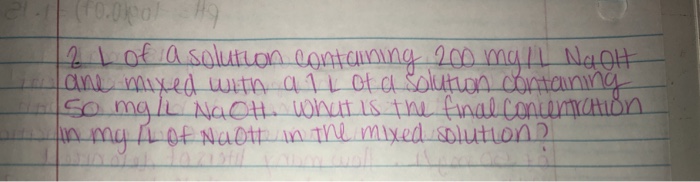 2 L of a solution containing 200 mg/L NaOH
are mixed with a 1 L of a solution containing
50 mg/L NaOH. What is the final concentration
in mg/L of NaOH in the mixed solution?